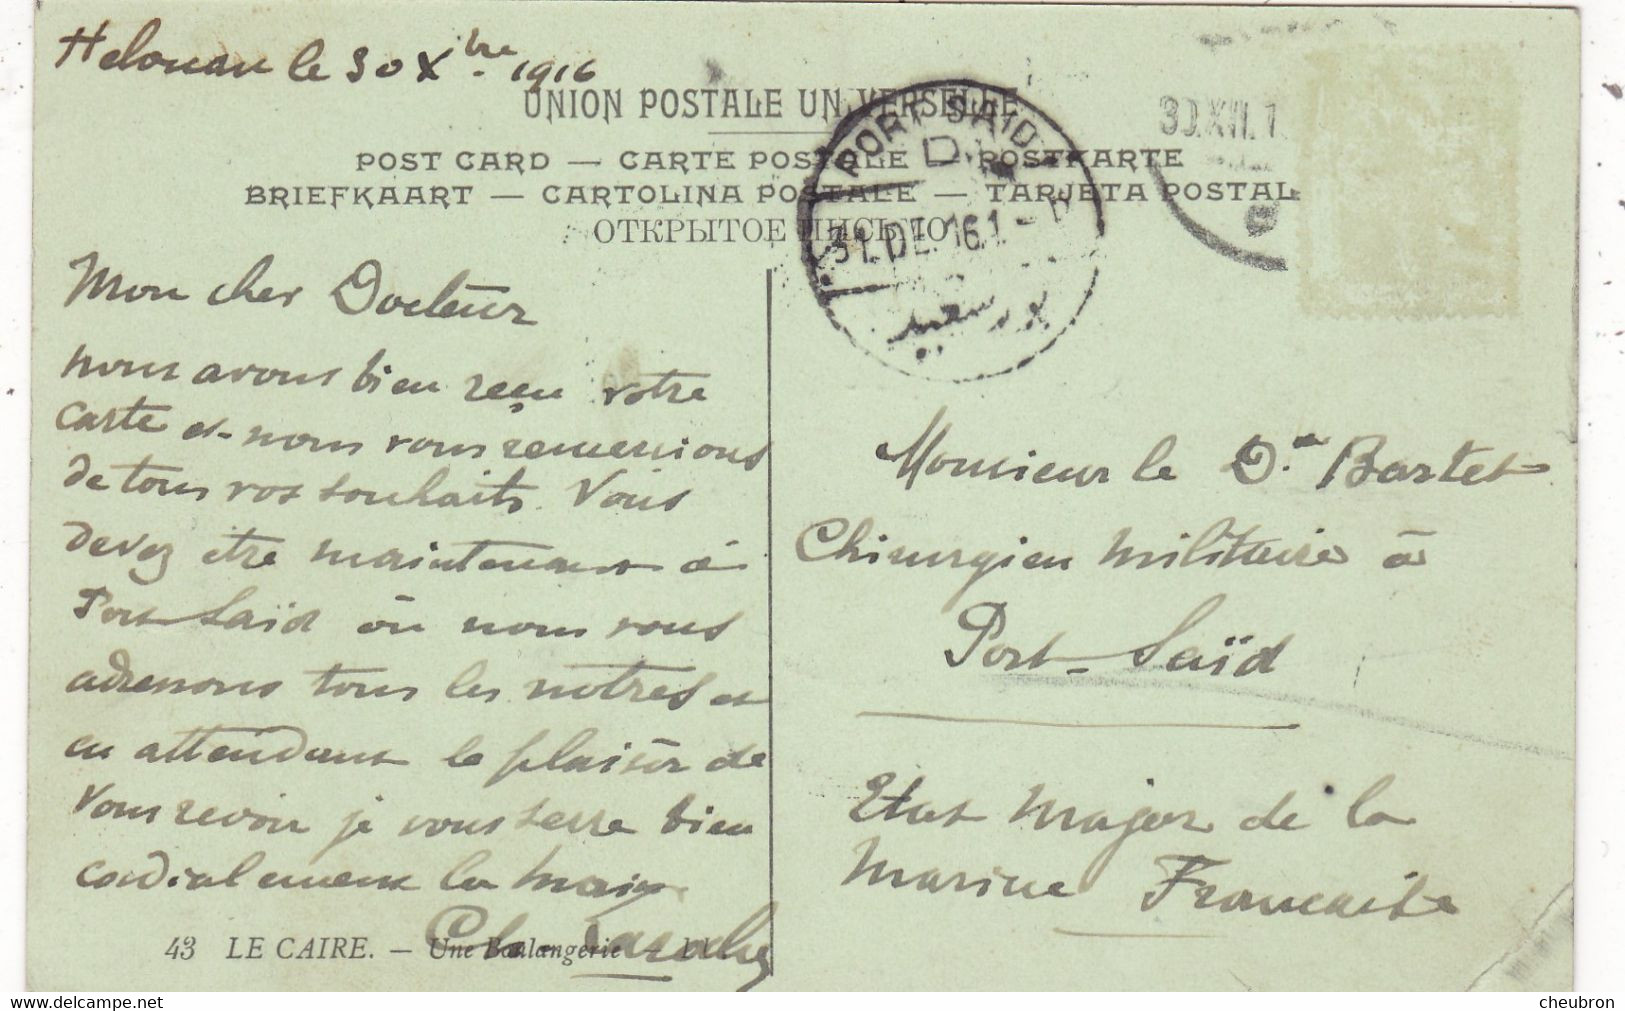 Helouan le 30 Xbre 1916
UNION POSTALE UNIVERSELLE
POST CARD — CARTE POSTALE — POSTKARTE
BRIEFKAART — CARTOLINA POSTALE — TARJETA POSTAL
ОТКРЫТОЕ ПИСЬМО
PORT SAID
D
31.DE.16.1-
30.XII.1
Mon cher Docteur
nous avons bien reçu votre
carte et nous vous remercions
de tous vos souhaits. Vous
devez etre maintenant à
Port Saïd où nous vous
adressons tous les nôtres et
en attendant le plaisir de
vous revoir je vous serre bien
cordialement la main
43 LE CAIRE. — Une Boulangerie — LL
Monsieur le Dr Bartet
Chirurgien militaire à
Port-Saïd
Etat Major de la
Marine Française
cheubron